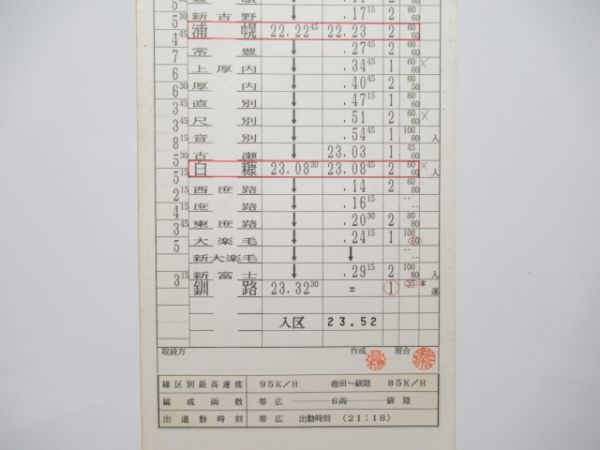 5³⁰ 新吉野 ↓ .17¹⁵ 2 80/60
5 浦幌 22.22⁴⁵ 22.23 2 60/60
4⁴⁵ 常豊 ↓ .27⁴⁵ 2 60/60
7 上厚内 ↓ .34⁴⁵ 1 60/60 ×
6 厚内 ↓ .40⁴⁵ 2 60/50
6³⁰ 直別 ↓ .47¹⁵ 1 60/60
3⁴⁵ 尺別 ↓ .51 2 60/60 ×
3⁴⁵ 音別 ↓ .54⁴⁵ 1 100/80 入
8¹⁵ 古瀬 ↓ 23.03 1 45/60
5³⁰ 白糠 23.08³⁰ 23.08⁴⁵ 2 60/60 × 入
5¹⁵ 西庶路 ↓ .14 2 80/60
2¹⁵ 庶路 ↓ .16¹⁵ -- --
4¹⁵ 東庶路 ↓ .20³⁰ 2 80/80
3⁴⁵ 大楽毛 ↓ .24¹⁵ 1 100/60
5 新大楽毛 ↓ ↓ -- --
新富士 ↓ .29¹⁵ 2 100/80 入
3¹⁵ 釧路 23.32³⁰ = 1 35 * 運
入区 23.52
取扱方 作成 照合
線区別最高速度 95K/H 池田〜釧路 85K/H
編成両数 帯広──6両──釧路
出退勤時刻 帯広 出勤時刻 (21:18)